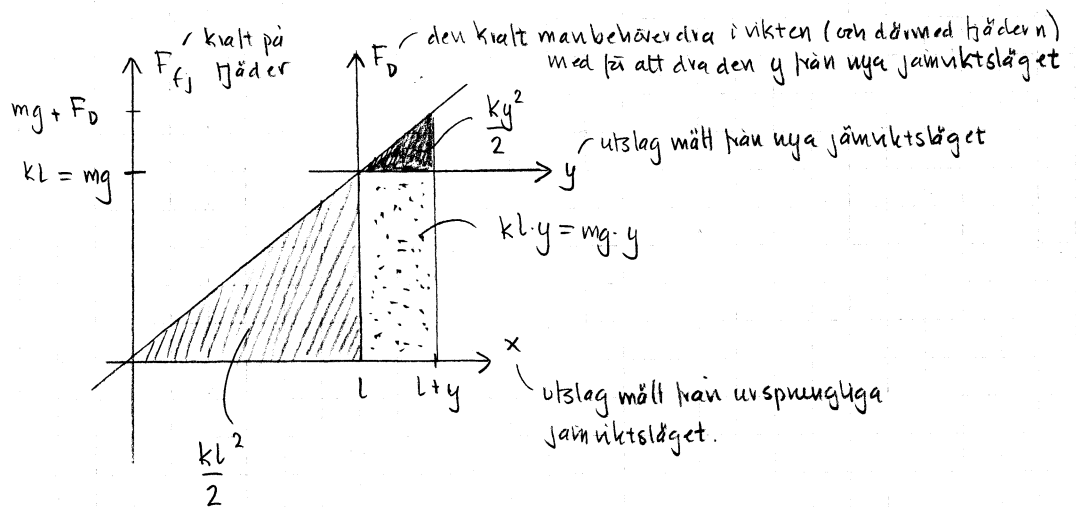 kraft på
fjäder
F_fj
F_D
den kraft man behöver dra i vikten (och därmed fjädern)
med för att dra den y från nya jämviktsläget
mg + F_D
kl = mg
ky²/2
y
utslag mätt från nya jämviktsläget
kl·y = mg·y
x
l
l+y
utslag mätt från ursprungliga
jämviktsläget.
kl²/2